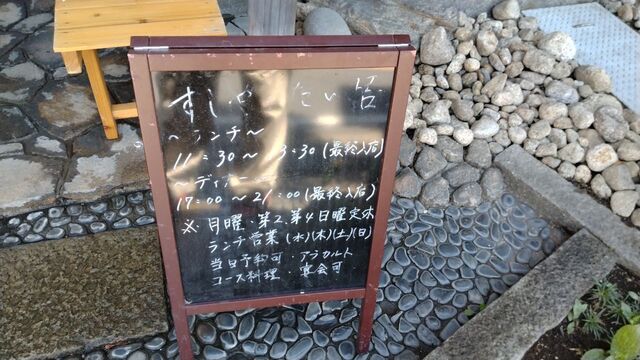 すし
〜ランチ〜
11:30〜13:30(最終入店)
〜ディナー〜
17:00〜21:00(最終入店)
※月曜・第2、第4日曜定休
ランチ営業(水)(木)(土)(日)
当日予約可・アラカルト
コース料理・宴会可